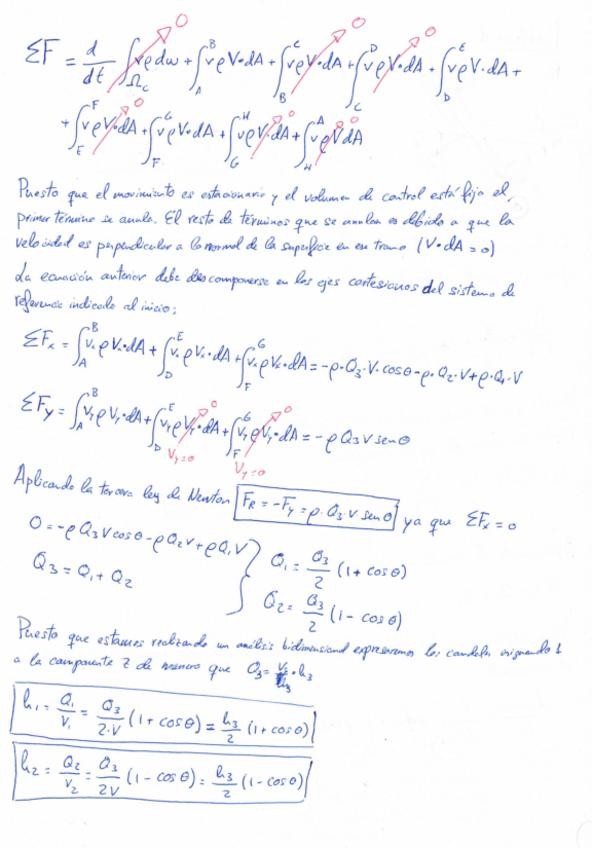 ΣF = d/dt ∫_Ωc vρdω + ∫_A^B vρV·dA + ∫_B^C vρV·dA + ∫_C^D vρV·dA + ∫_D^E vρV·dA +
0 0 0
+ ∫_E^F vρV·dA + ∫_F^G vρV·dA + ∫_G^H vρV·dA + ∫_H^A vρVdA
0 0 0
Puesto que el movimiento es estacionario y el volumen de control está fijo el,
primer término se anula. El resto de términos que se anulan es debido a que la
velocidad es perpendicular a la normal de la superficie en ese tramo (V·dA = 0)
La ecuación anterior debe descomponerse en los ejes cartesianos del sistema de
referencia indicado al inicio:
ΣFx = ∫_A^B vxρVx·dA + ∫_D^E vxρVx·dA + ∫_F^G vxρVx·dA = -ρ·Q3·V·cosθ - ρ·Q2·V + ρ·Q1·V
ΣFy = ∫_A^B vyρVy·dA + ∫_D^E vyρVy·dA + ∫_F^G vyρVy·dA = -ρQ3Vsenθ
0 0
Vy=0 Vy=0
Aplicando la tercera ley de Newton FR = -Fy = ρ·Q3·V senθ ya que ΣFx = 0
0 = -ρQ3Vcosθ - ρQ2V + ρQ1V
Q3 = Q1 + Q2
} Q1 = Q3/2 (1 + cosθ)
Q2 = Q3/2 (1 - cosθ)
Puesto que estamos realizando un análisis bidimensional expresaremos los caudales asignando 1
a la componente z de manera que Q3 = V3·h3
h1 = Q1/V1 = Q3/2·V (1 + cosθ) = h3/2 (1 + cosθ)
h2 = Q2/V2 = Q3/2V (1 - cosθ) = h3/2 (1 - cosθ)